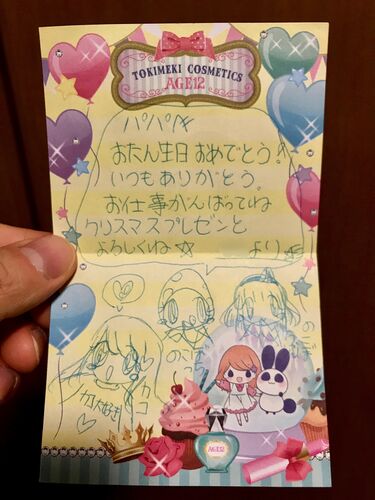 TOKIMEKI COSMETICS
AGE12
パパへ
おたん生日おめでとう!
いつもありがとう。
お仕事がんばってね
クリスマスプレゼンと
よろしくね☆
より
AGE12